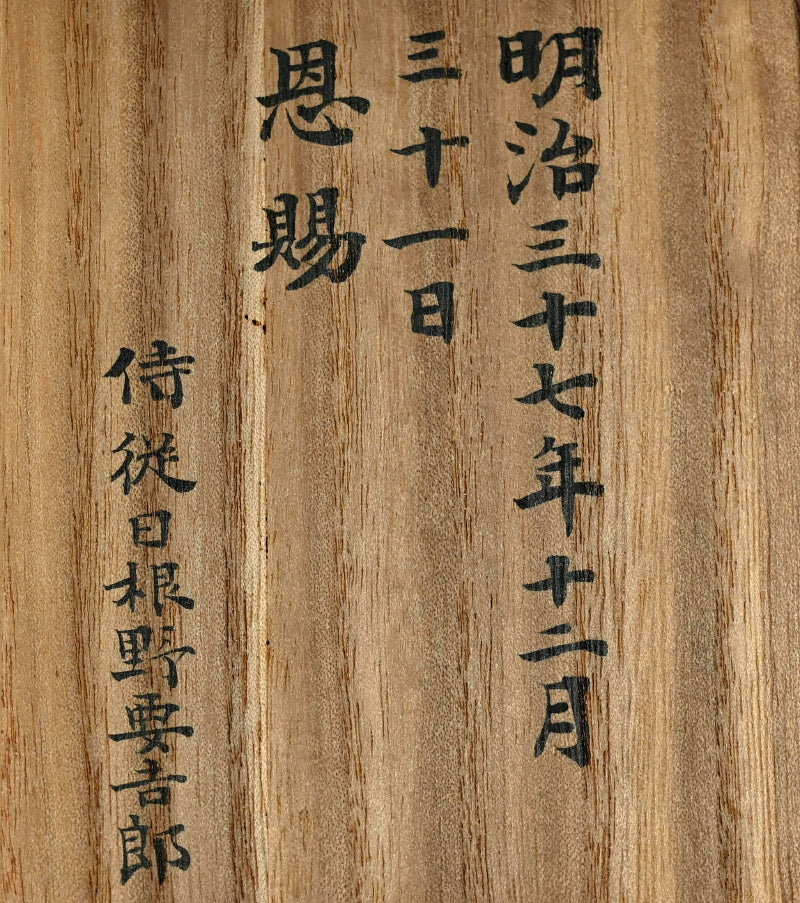 明治三十七年十二月
三十一日
恩賜
侍從日根野要吉郎